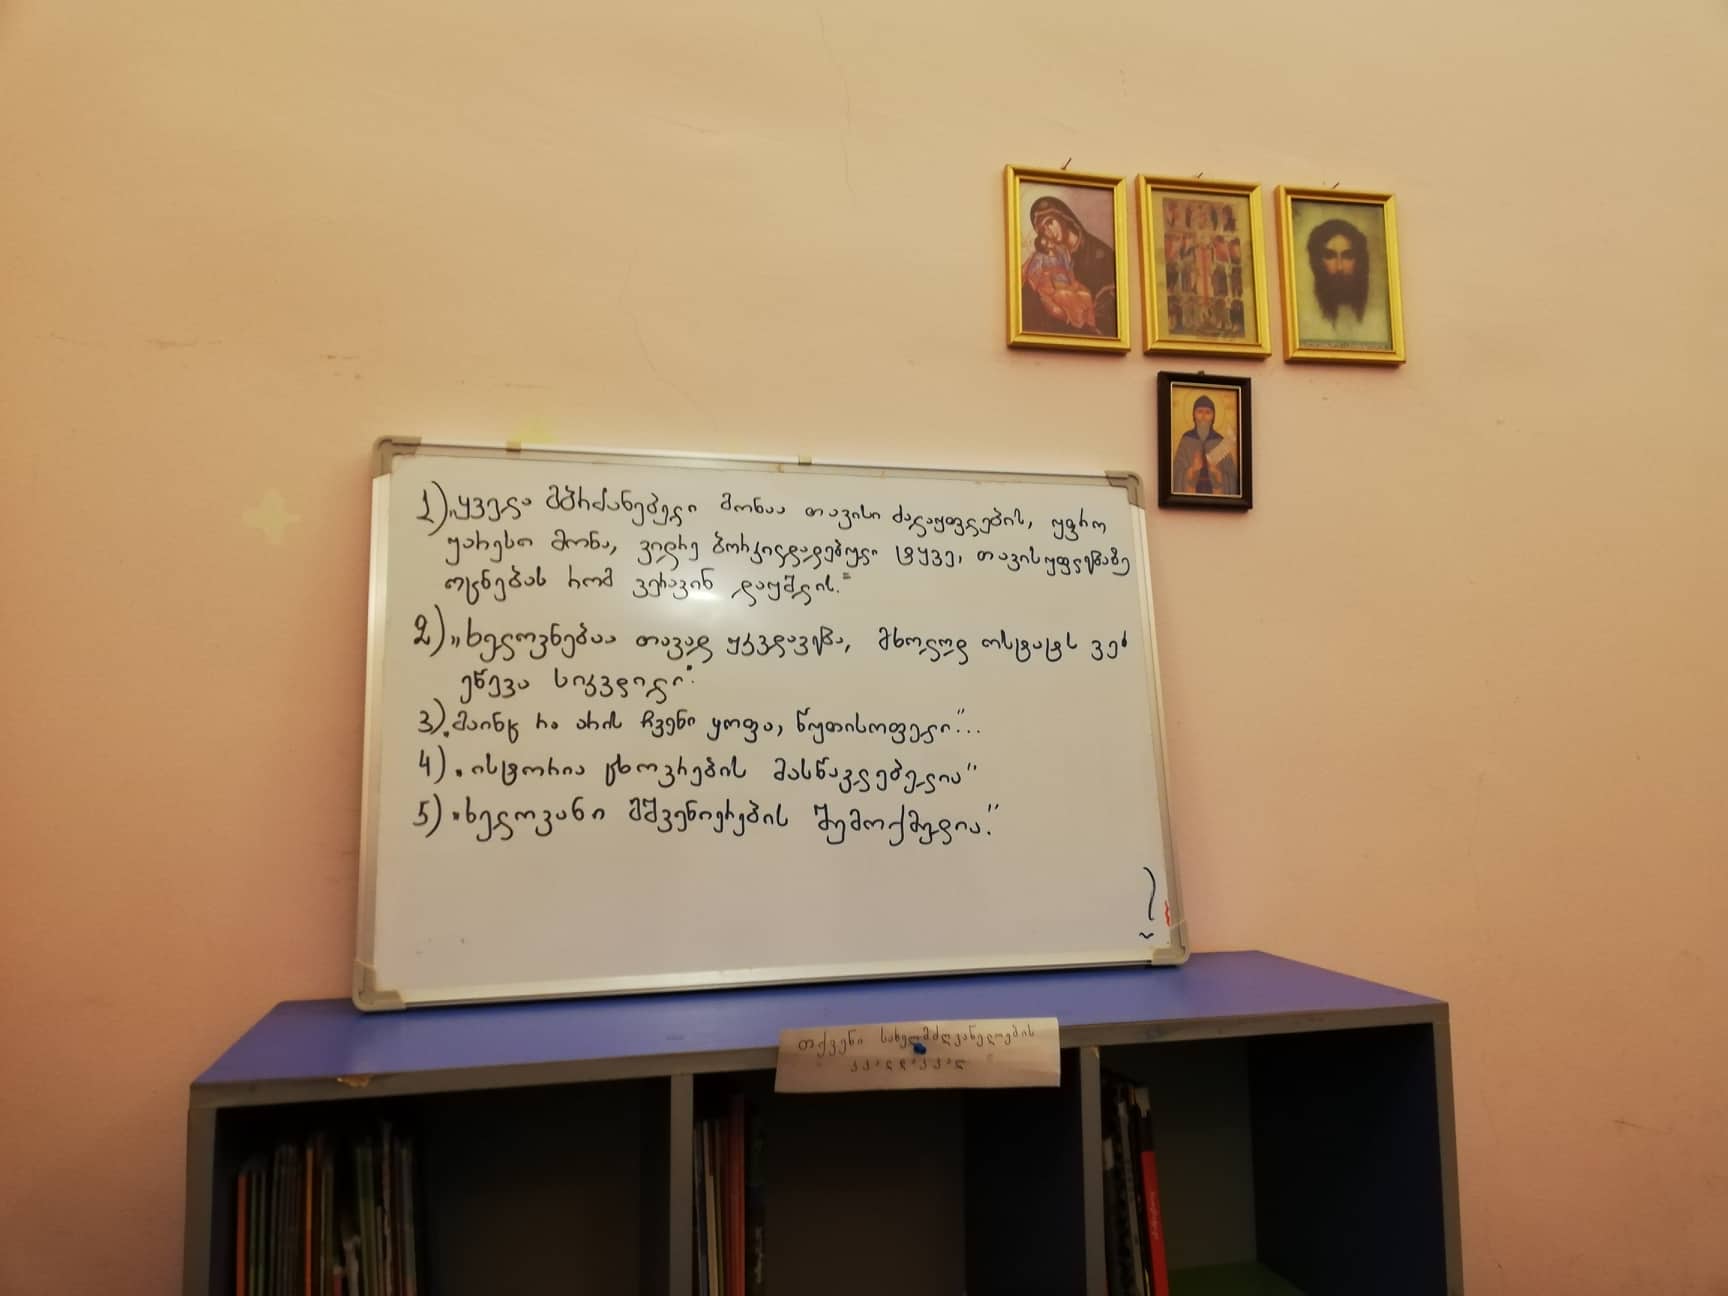 1) „ყველა მბრძანებელი მონაა თავისი ძალაუფლების, უფრო
უარესი მონა, ვიდრე ბორკილდადებული ტყვე, თავისუფლებაზე
ოცნებას რომ ვერავინ დაუშლის."
2) „ხელოვნებაა თავად უკვდავება, მხოლოდ ოსტატს ვერ
ეწევა სიკვდილი."
3) „მაინც რა არის ჩვენი ყოფა, წუთისოფელი"...
4) „ისტორია ცხოვრების მასწავლებელია"
5) „ხელოვანი მშვენიერების შემოქმედია."
?
თქვენი სახელმძღვანელოების